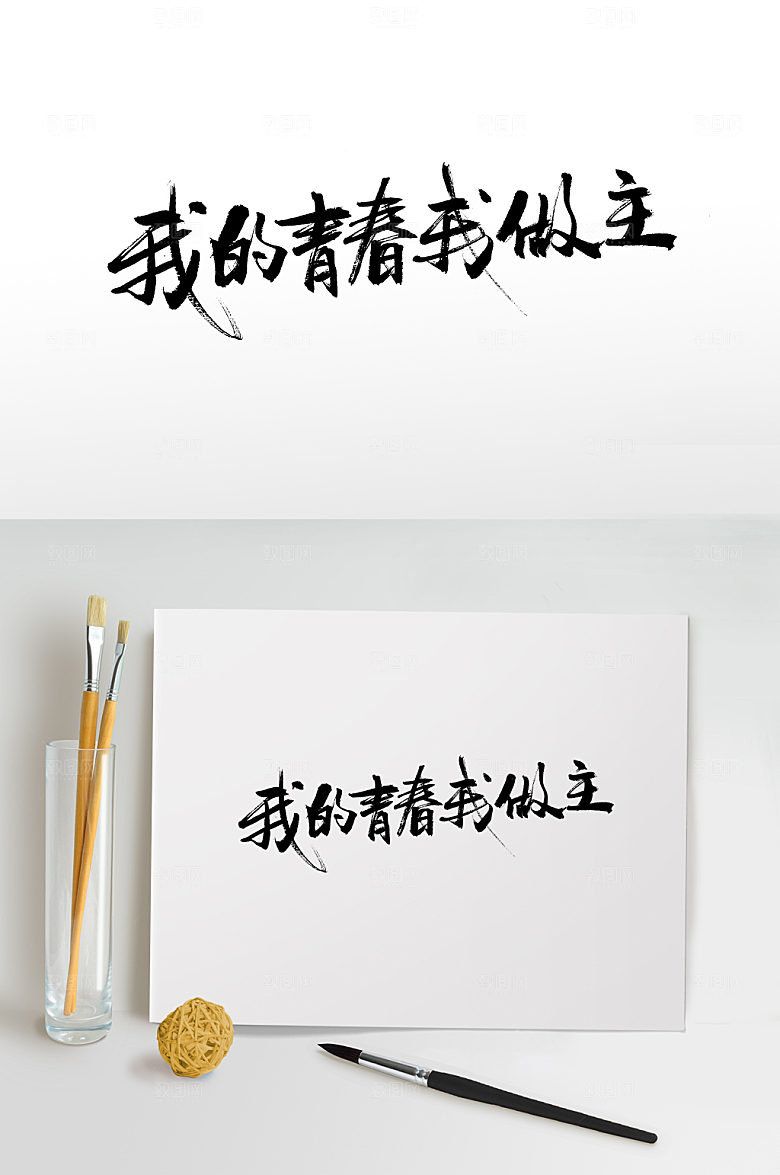 我的青春我做主
我的青春我做主